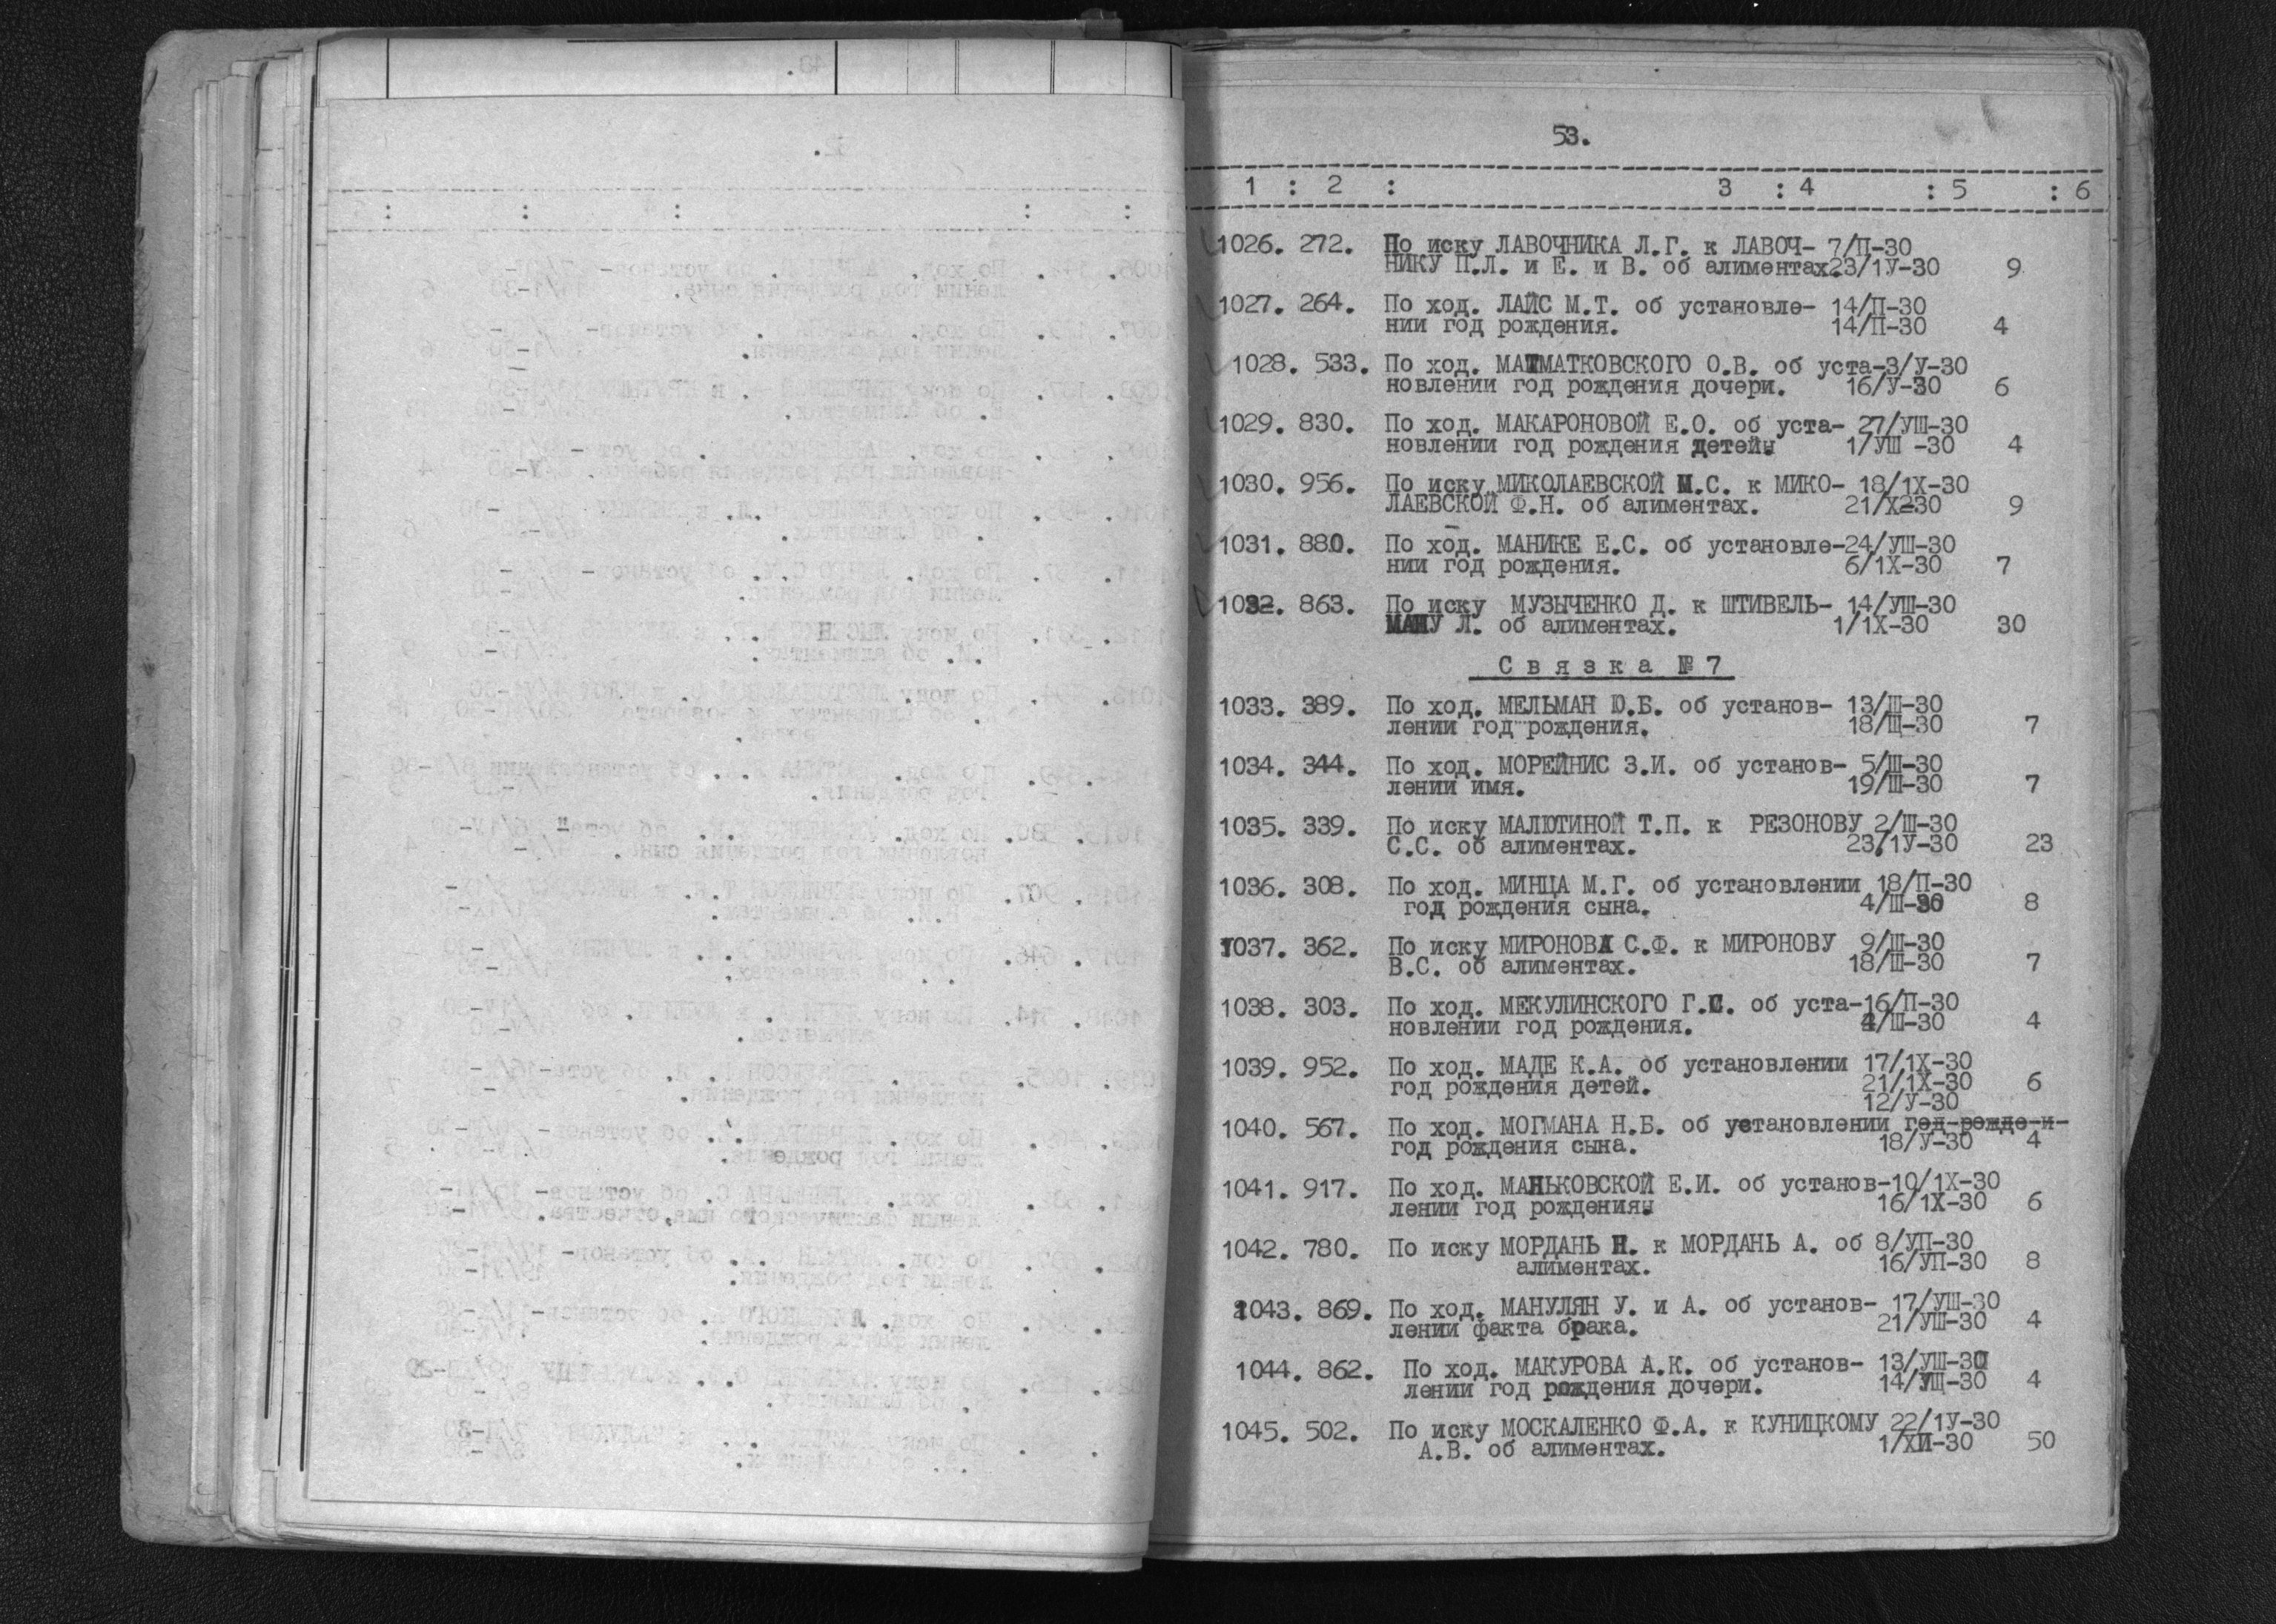 53.
1 : 2 : 3 : 4 : 5 : 6
1026. 272. По иску ЛАВОЧНИКА Л.Г. к ЛАВОЧ- 7/П-30
НИКУ П.Л. и Е. и В. об алиментах.23/1У-30 9
1027. 264. По ход. ЛАЙС М.Т. об установле- 14/П-30
нии год рождения. 14/П-30 4
1028. 533. По ход. МАТМАТКОВСКОГО О.В. об уста-3/У-30
новлении год рождения дочери. 16/У-30 6
1029. 830. По ход. МАКАРОНОВОЙ Е.О. об уста- 27/УШ-30
новлении год рождения детей. 1/УШ -30 4
1030. 956. По иску МИКОЛАЕВСКОЙ М.С. к МИКО- 18/1Х-30
ЛАЕВСКОЙ Ф.Н. об алиментах. 21/Х-30 9
1031. 880. По ход. МАНИКЕ Е.С. об установле-24/УШ-30
нии год рождения. 6/1Х-30 7
1032. 863. По иску МУЗЫЧЕНКО Д. к ШТИВЕЛЬ- 14/УШ-30
МАНУ Л. об алиментах. 1/1Х-30 30
Связка № 7
1033. 389. По ход. МЕЛЬМАН Ю.Б. об установ- 13/Ш-30
лении год рождения. 18/Ш-30 7
1034. 344. По ход. МОРЕЙНИС З.И. об установ- 5/Ш-30
лении имя. 19/Ш-30 7
1035. 339. По иску МАЛЮТИНОЙ Т.П. к РЕЗОНОВУ 2/Ш-30
С.С. об алиментах. 23/1У-30 23
1036. 308. По ход. МИНЦА М.Г. об установлении 18/П-30
год рождения сына. 4/Ш-30 8
1037. 362. По иску МИРОНОВА С.Ф. к МИРОНОВУ 9/Ш-30
В.С. об алиментах. 18/Ш-30 7
1038. 303. По ход. МЕКУЛИНСКОГО Г.С. об уста-16/П-30
новлении год рождения. 4/Ш-30 4
1039. 952. По ход. МАДЕ К.А. об установлении 17/1Х-30
год рождения детей. 21/1Х-30 6
12/У-30
1040. 567. По ход. МОГМАНА Н.Б. об установлении год рожде-и-
год рождения сына. 18/У-30 4
1041. 917. По ход. МАНЬКОВСКОЙ Е.И. об установ-10/1Х-30
лении год рождения. 16/1Х-30 6
1042. 780. По иску МОРДАНЬ Н. к МОРДАНЬ А. об 8/УП-30
алиментах. 16/УП-30 8
1043. 869. По ход. МАНУЛЯН У. и А. об установ- 17/УШ-30
лении факта брака. 21/УШ-30 4
1044. 862. По ход. МАКУРОВА А.К. об установ- 13/УШ-30
лении год рождения дочери. 14/УШ-30 4
1045. 502. По иску МОСКАЛЕНКО Ф.А. к КУНИЦКОМУ 22/1У-30
А.В. об алиментах. 1/ХИ-30 50